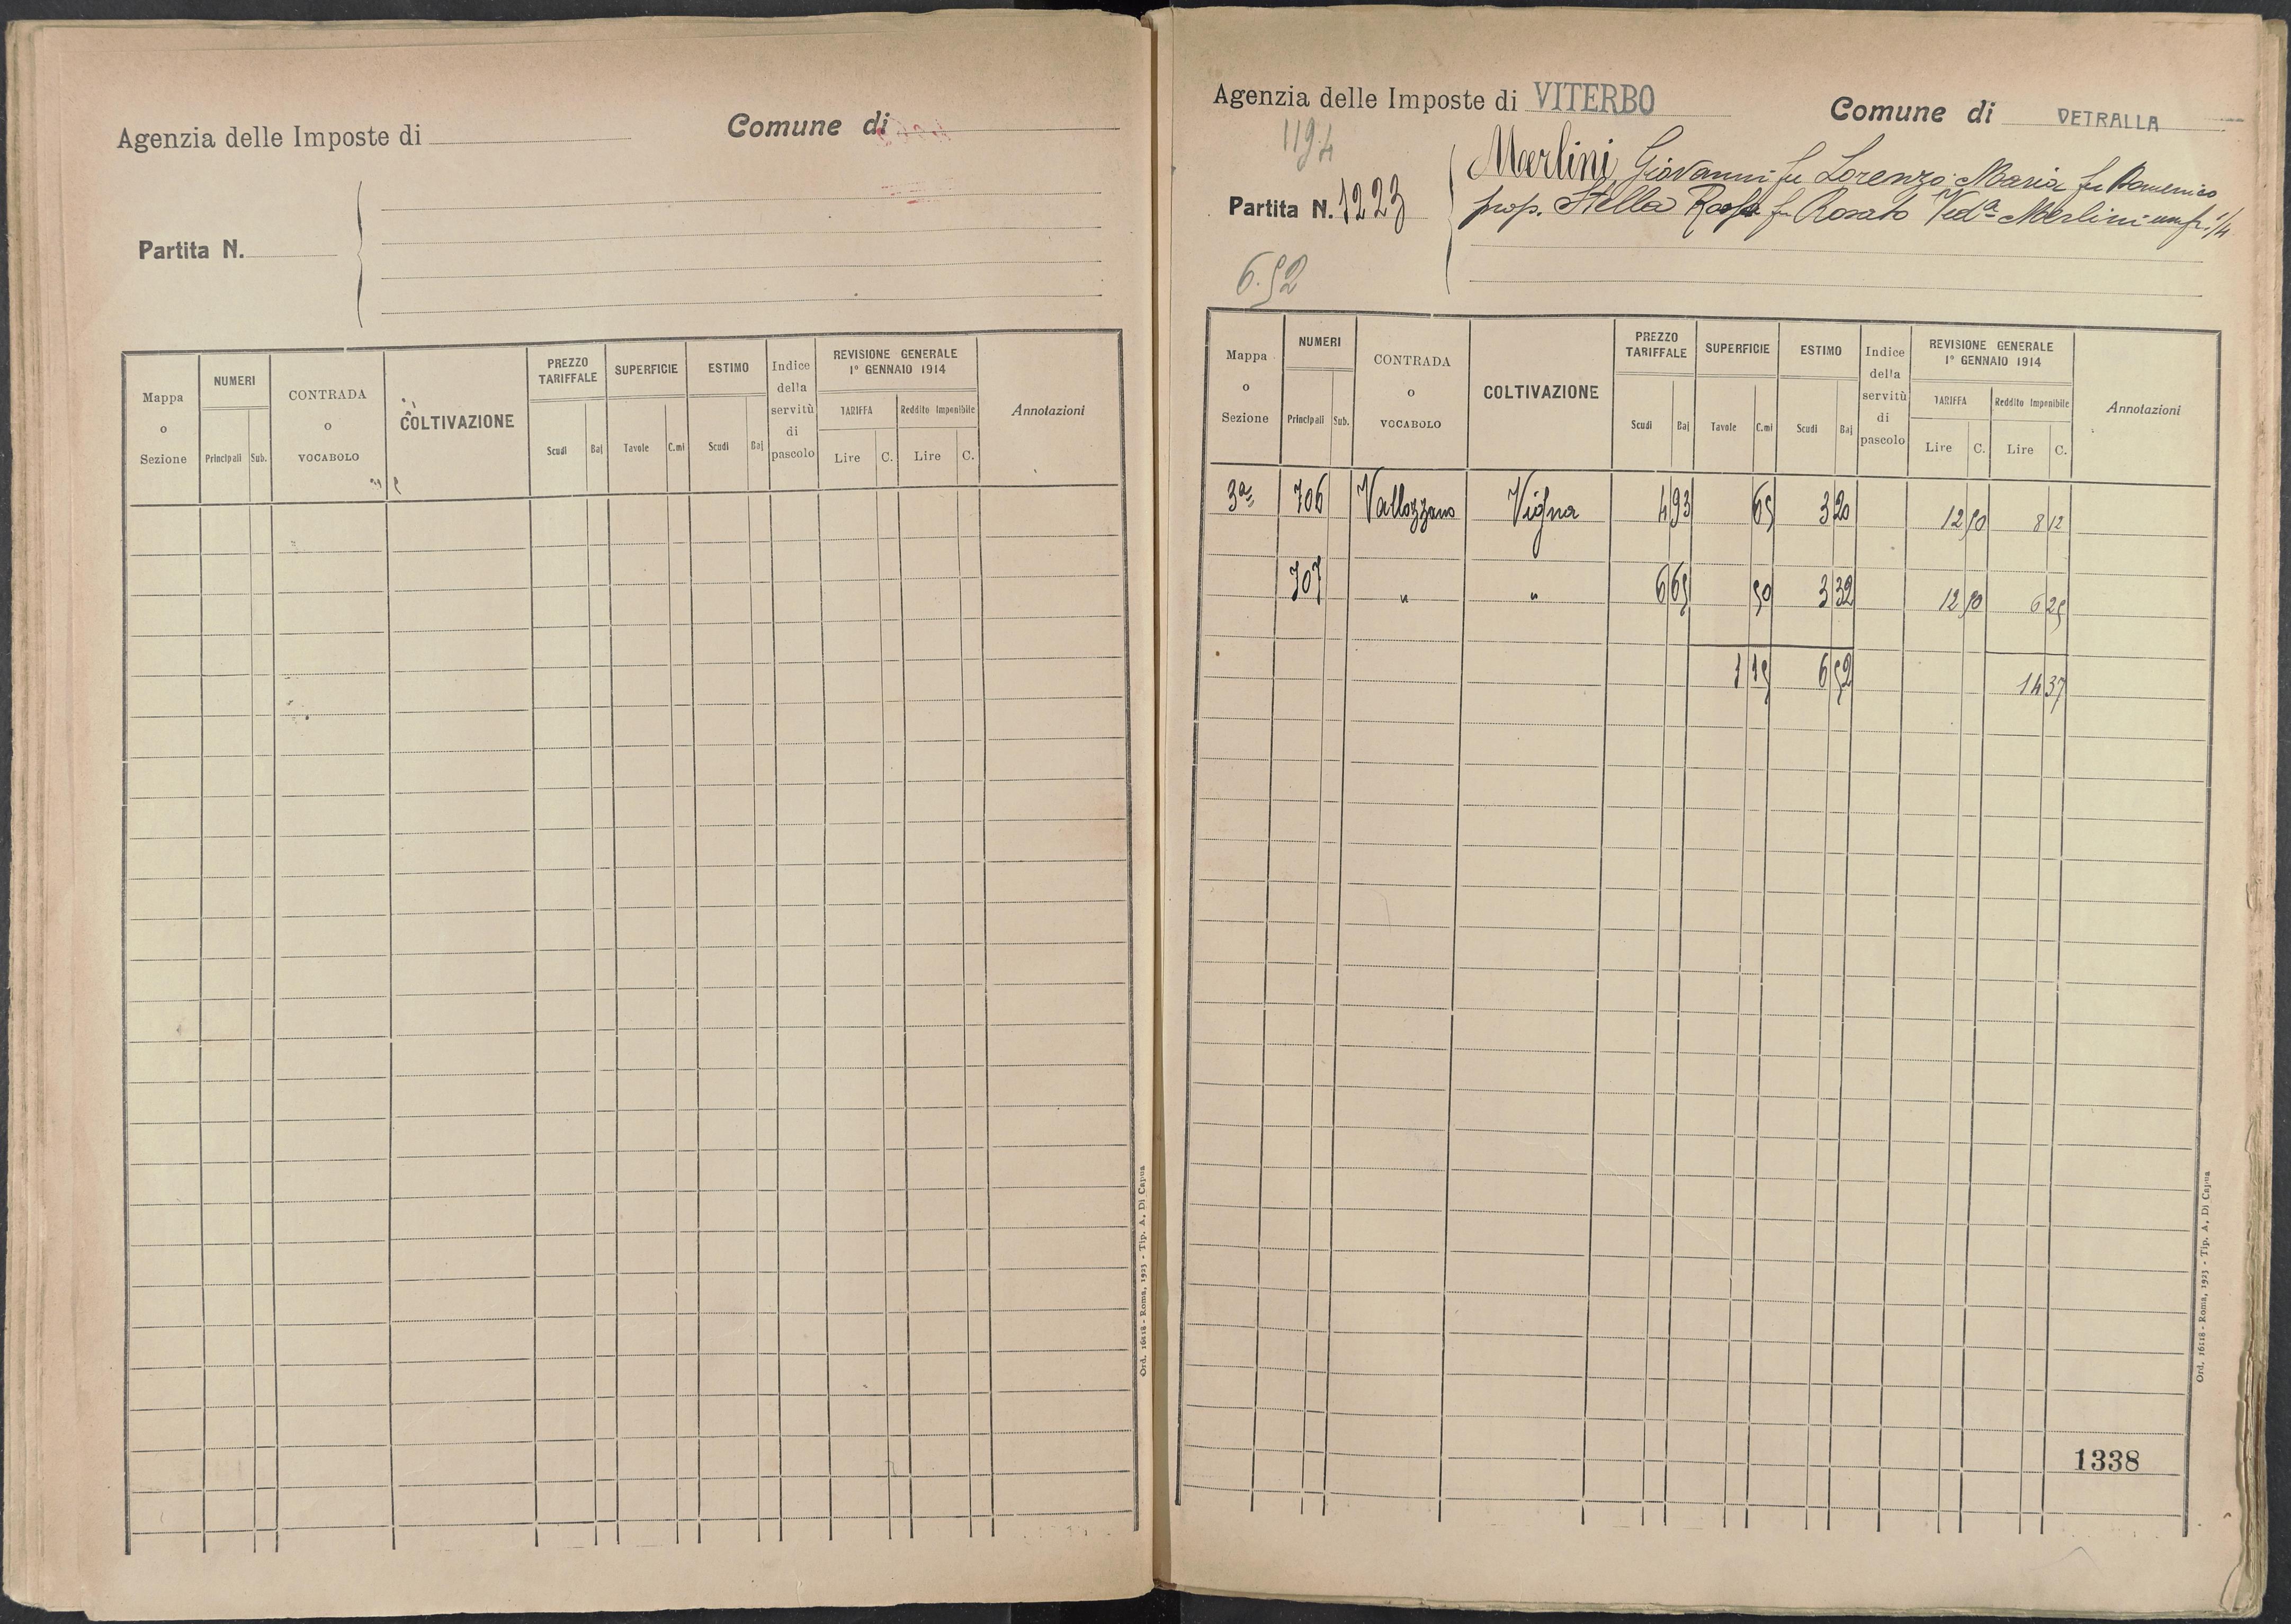 Agenzia delle Imposte di
Comune di
Partita N.
Mappa o Sezione
NUMERI
Principali Sub.
CONTRADA o VOCABOLO
COLTIVAZIONE
PREZZO TARIFFALE
Scudi Baj
SUPERFICIE
Tavole C.mi
ESTIMO
Scudi Baj
Indice della servitù di pascolo
REVISIONE GENERALE
1° GENNAIO 1914
TARIFFA Reddito Imponibile
Lire C. Lire C.
Annotazioni
Ord. 16118 - Roma, 1923 - Tip. A. Di Capua
Agenzia delle Imposte di VITERBO
Comune di VETRALLA
1194
Partita N. 1223
Merlini Giovanni fu Lorenzo, Maria fu Domenico
prop. Stella Rosa fu Rosato Ved.a Merlini usufr. 1/4
6.52
Mappa o Sezione
NUMERI
Principali Sub.
CONTRADA o VOCABOLO
COLTIVAZIONE
PREZZO TARIFFALE
Scudi Baj
SUPERFICIE
Tavole C.mi
ESTIMO
Scudi Baj
Indice della servitù di pascolo
REVISIONE GENERALE
1° GENNAIO 1914
TARIFFA Reddito Imponibile
Lire C. Lire C.
Annotazioni
3a 706 Vallozzano Vigna 4 93 65 3 20 12 50 8 12
707 " " 6 65 50 3 32 12 50 6 25
1 15 6 52 14 37
1338
Ord. 16118 - Roma, 1923 - Tip. A. Di Capua